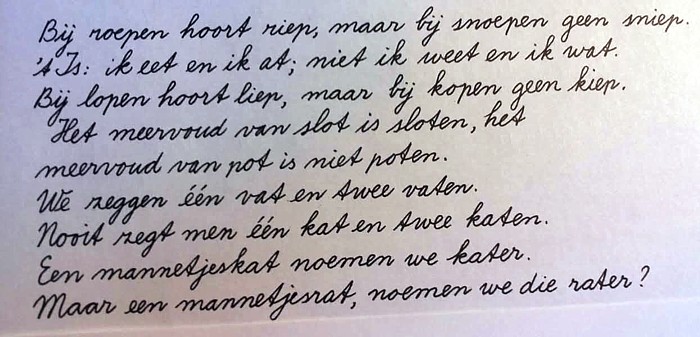 Bij roepen hoort riep, maar bij snoepen geen sniep.
't Is: ik eet en ik at; niet ik weet en ik wat.
Bij lopen hoort liep, maar bij kopen geen kiep.
Het meervoud van slot is sloten, het
meervoud van pot is niet poten.
We zeggen één vat en twee vaten.
Nooit zegt men één kat en twee katen.
Een mannetjeskat noemen we kater.
Maar een mannetjesrat, noemen we die rater?